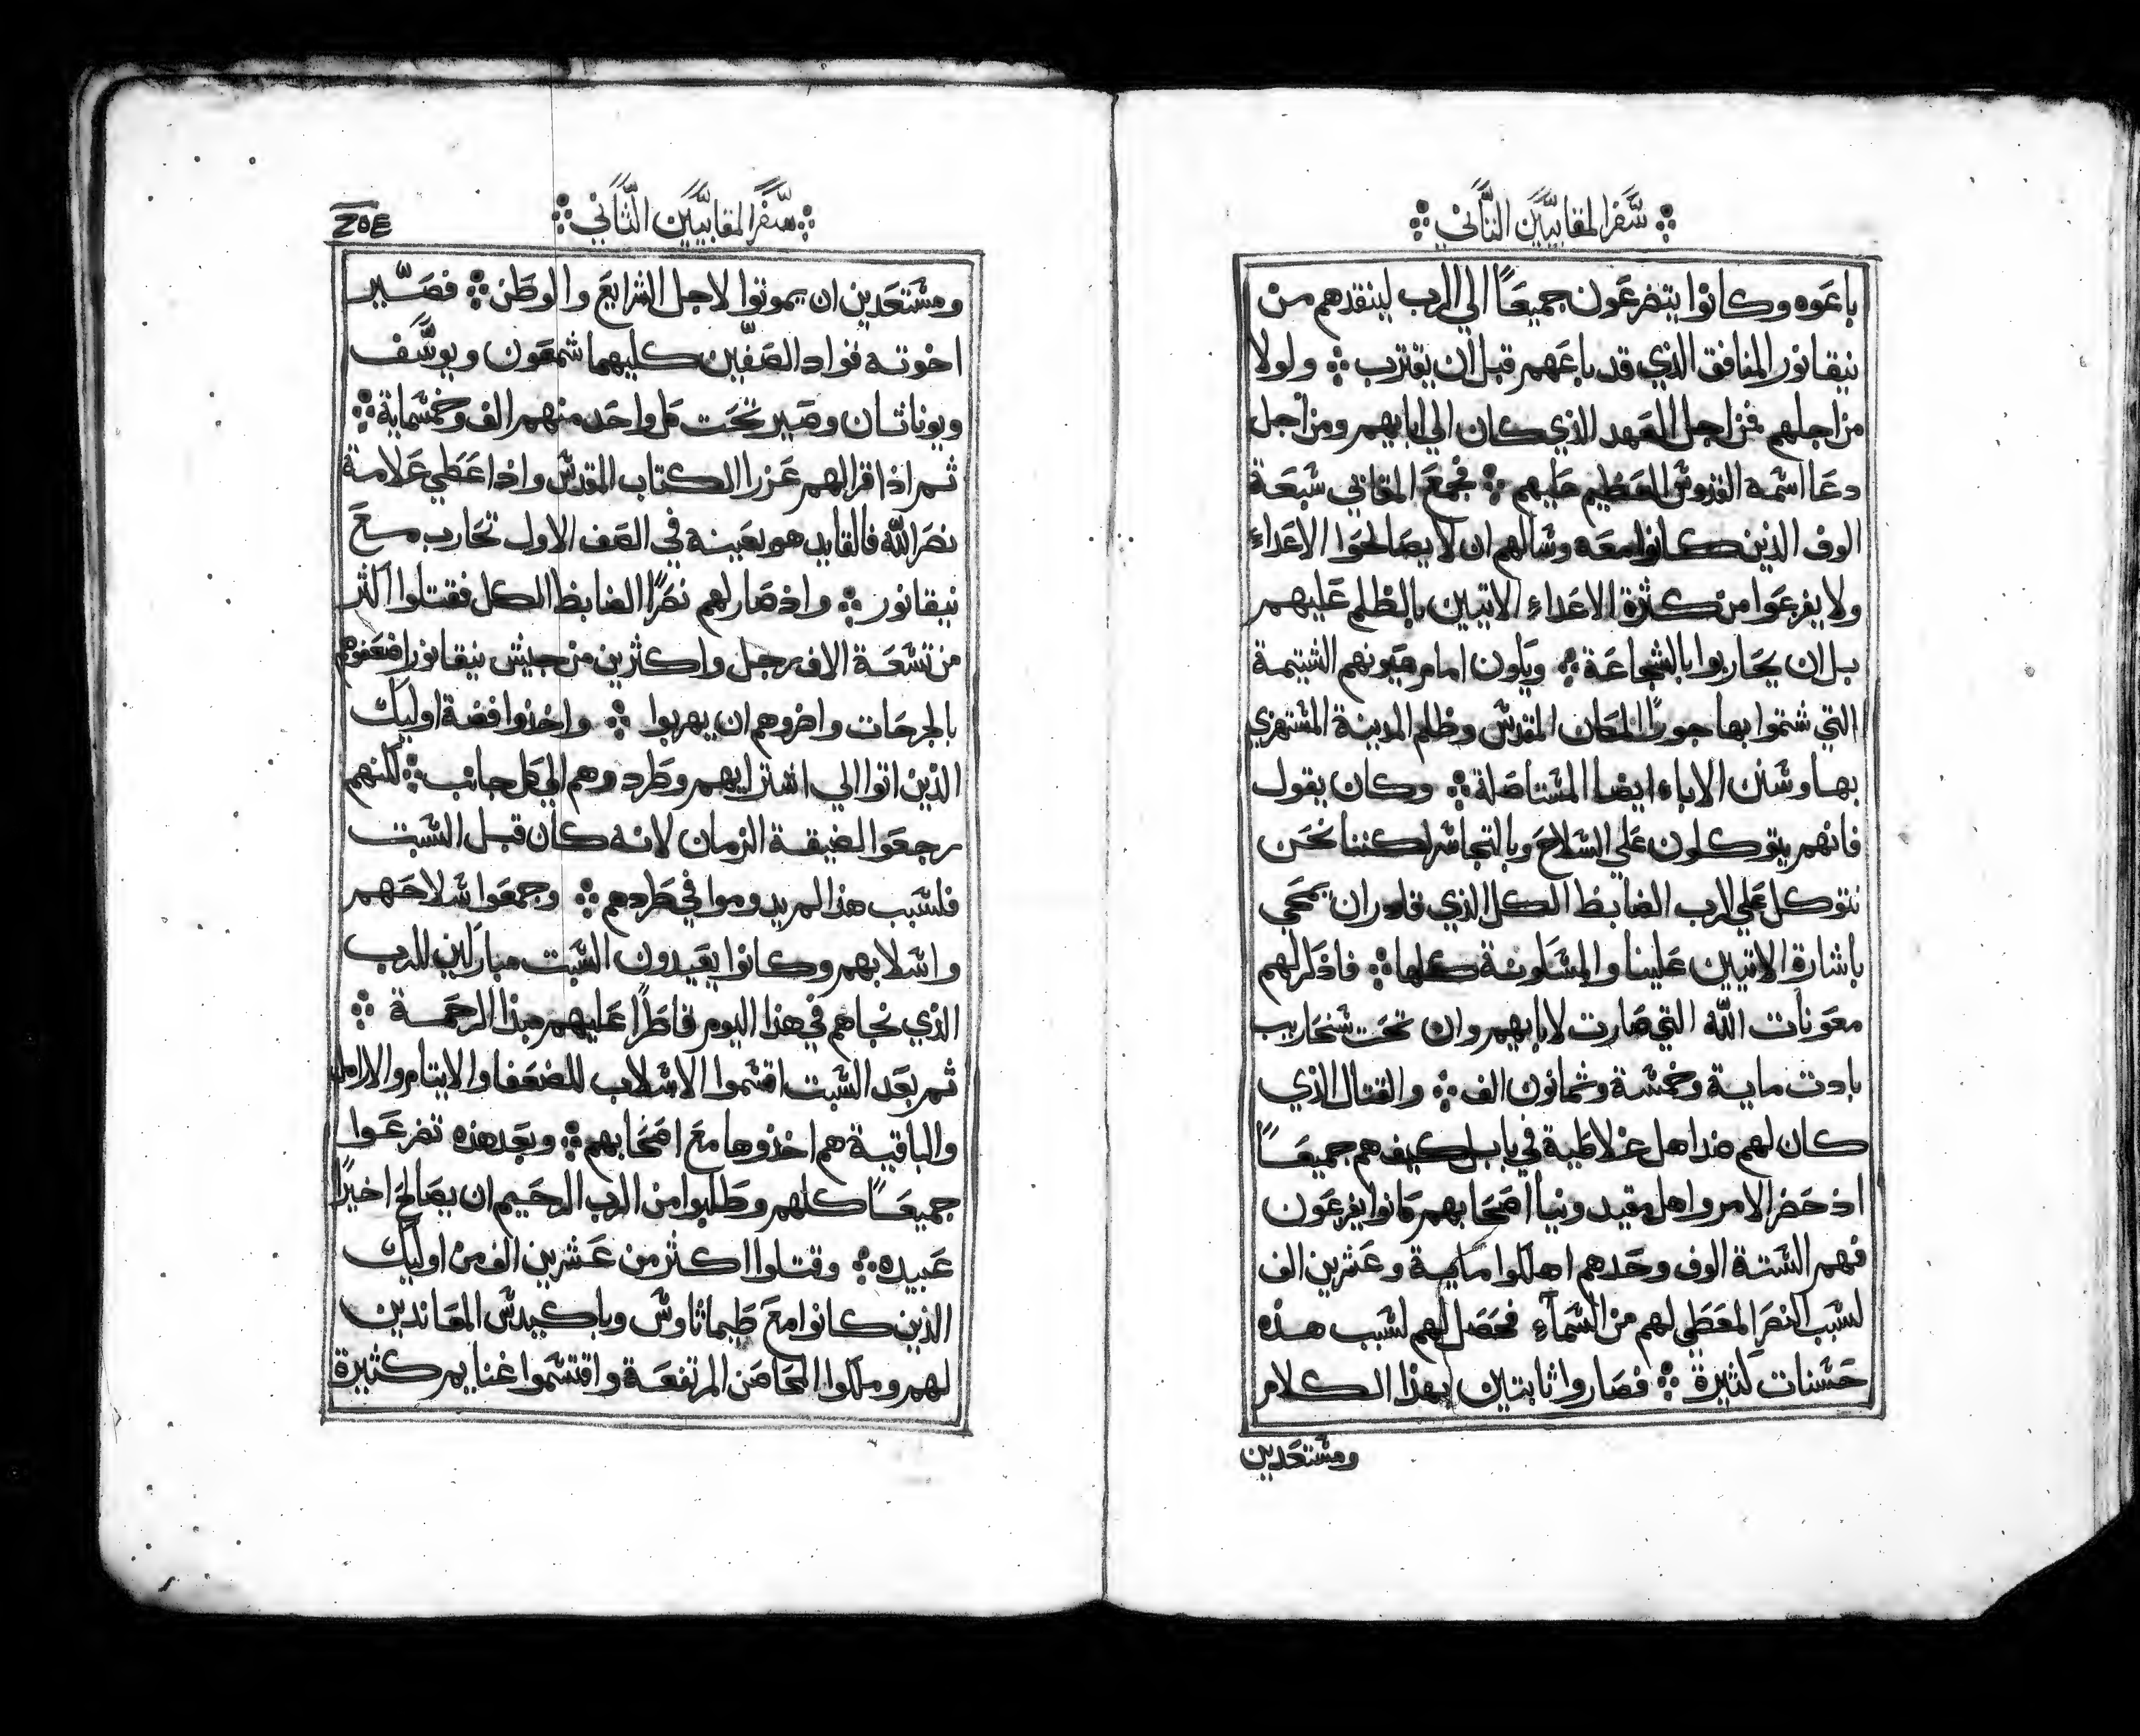 سفر المقابيين الثاني
باعوه وكانوا يتضرعون جميعًا الي الرب لينقدهم من
نيقانور المنافق الذي قد باعهم قبل ان يقترب ولولا
من اجلهم فمن اجل العهد الذي كان الي ابايهم ومن اجل
دعا اسمه القدوس العظيم عليهم فجمع المقابي سبعة
الوف الذين كانوا معه وسالهم ان لا يصالحوا الاعداء
ولا يفزعوا من كثرة الاعداء الاتيين بالظلم عليهم
بل ان يحاربوا بالشجاعة ويكون امام عيونهم الشتيمة
التي شتموا بها جورًا المكان المقدس وظلم المدينة المستهزي
بها وسنن الاباء ايضا المستاصلة وكان يقول
فانهم يتوكلون علي السلاح وبالتجاسر لكننا نحن
نتوكل علي الرب الضابط الكل الذي قادر ان يمحي
باشارة الاتيين علينا والمسكونة كلها فاذكرلهم
معونات الله التي صارت لابايهم وان تحت سنحاريب
بادت ماية وخمسة وثمانون الف والقتال الذي
كان لهم ضد اهل غلاطية في بابل كيف هم جميعًا
اذ حضر الامر واهل مقيدونيا اصحابهم كانوا يفزعون
فهم الستة الوف وحدهم اهلكوا ماية وعشرين الف
لسبب النصر المعطي لهم من السماء فحصل لهم لسبب هذه
حسنات كثيرة فصاروا ثابتين بهذا الكلام
ومستعدين
سفر المقابيين الثاني
ومستعدين ان يموتوا لاجل الشرايع والوطن فصير
اخوته قواد الصفين كليهما شمعون ويوسف
ويوناثان وصير تحت كل واحد منهم الف وخمسماية
ثم اذا قرا لهم عزرا الكتاب المقدس واذا عطي علامة
نصر الله فالقايد هو بعينه في الصف الاول تحارب مع
نيقانور واذ صار لهم نصرًا الضابط الكل فقتلوا اكثر
من تسعة الاف رجل واكثرين من جيش نيقانور اضعفوهم
بالجرحات واضروهم ان يهربوا واخذوا فضة اوليك
الذين اتوا الي اشترايهم وطردوهم الي كل جانب لكنهم
رجعوا لضيقة الزمان لانه كان قبل السبت
فلسبب هذا لم يدوموا في طردهم وجمعوا سلاحهم
واسلابهم وكانوا يعيدون السبت مباركين للرب
الذي نجاهم في هذا اليوم قاطرًا عليهم مبدا الرحمة
ثم بعد السبت اقسموا الاسلاب للضعفا والايتام والارامل
والباقية هم اخذوها مع اصحابهم وبعد هذه تضرعوا
جميعًا كلهم وطلبوا من الرب الرحيم ان يصالح اخيرًا
عبيده وقتلوا اكثر من عشرين الف من اوليك
الذين كانوا مع طيماثاوس وباكيدس المعاندين
لهم وملكوا الحاصن المرتفعة واقتسموا غنايم كثيرة